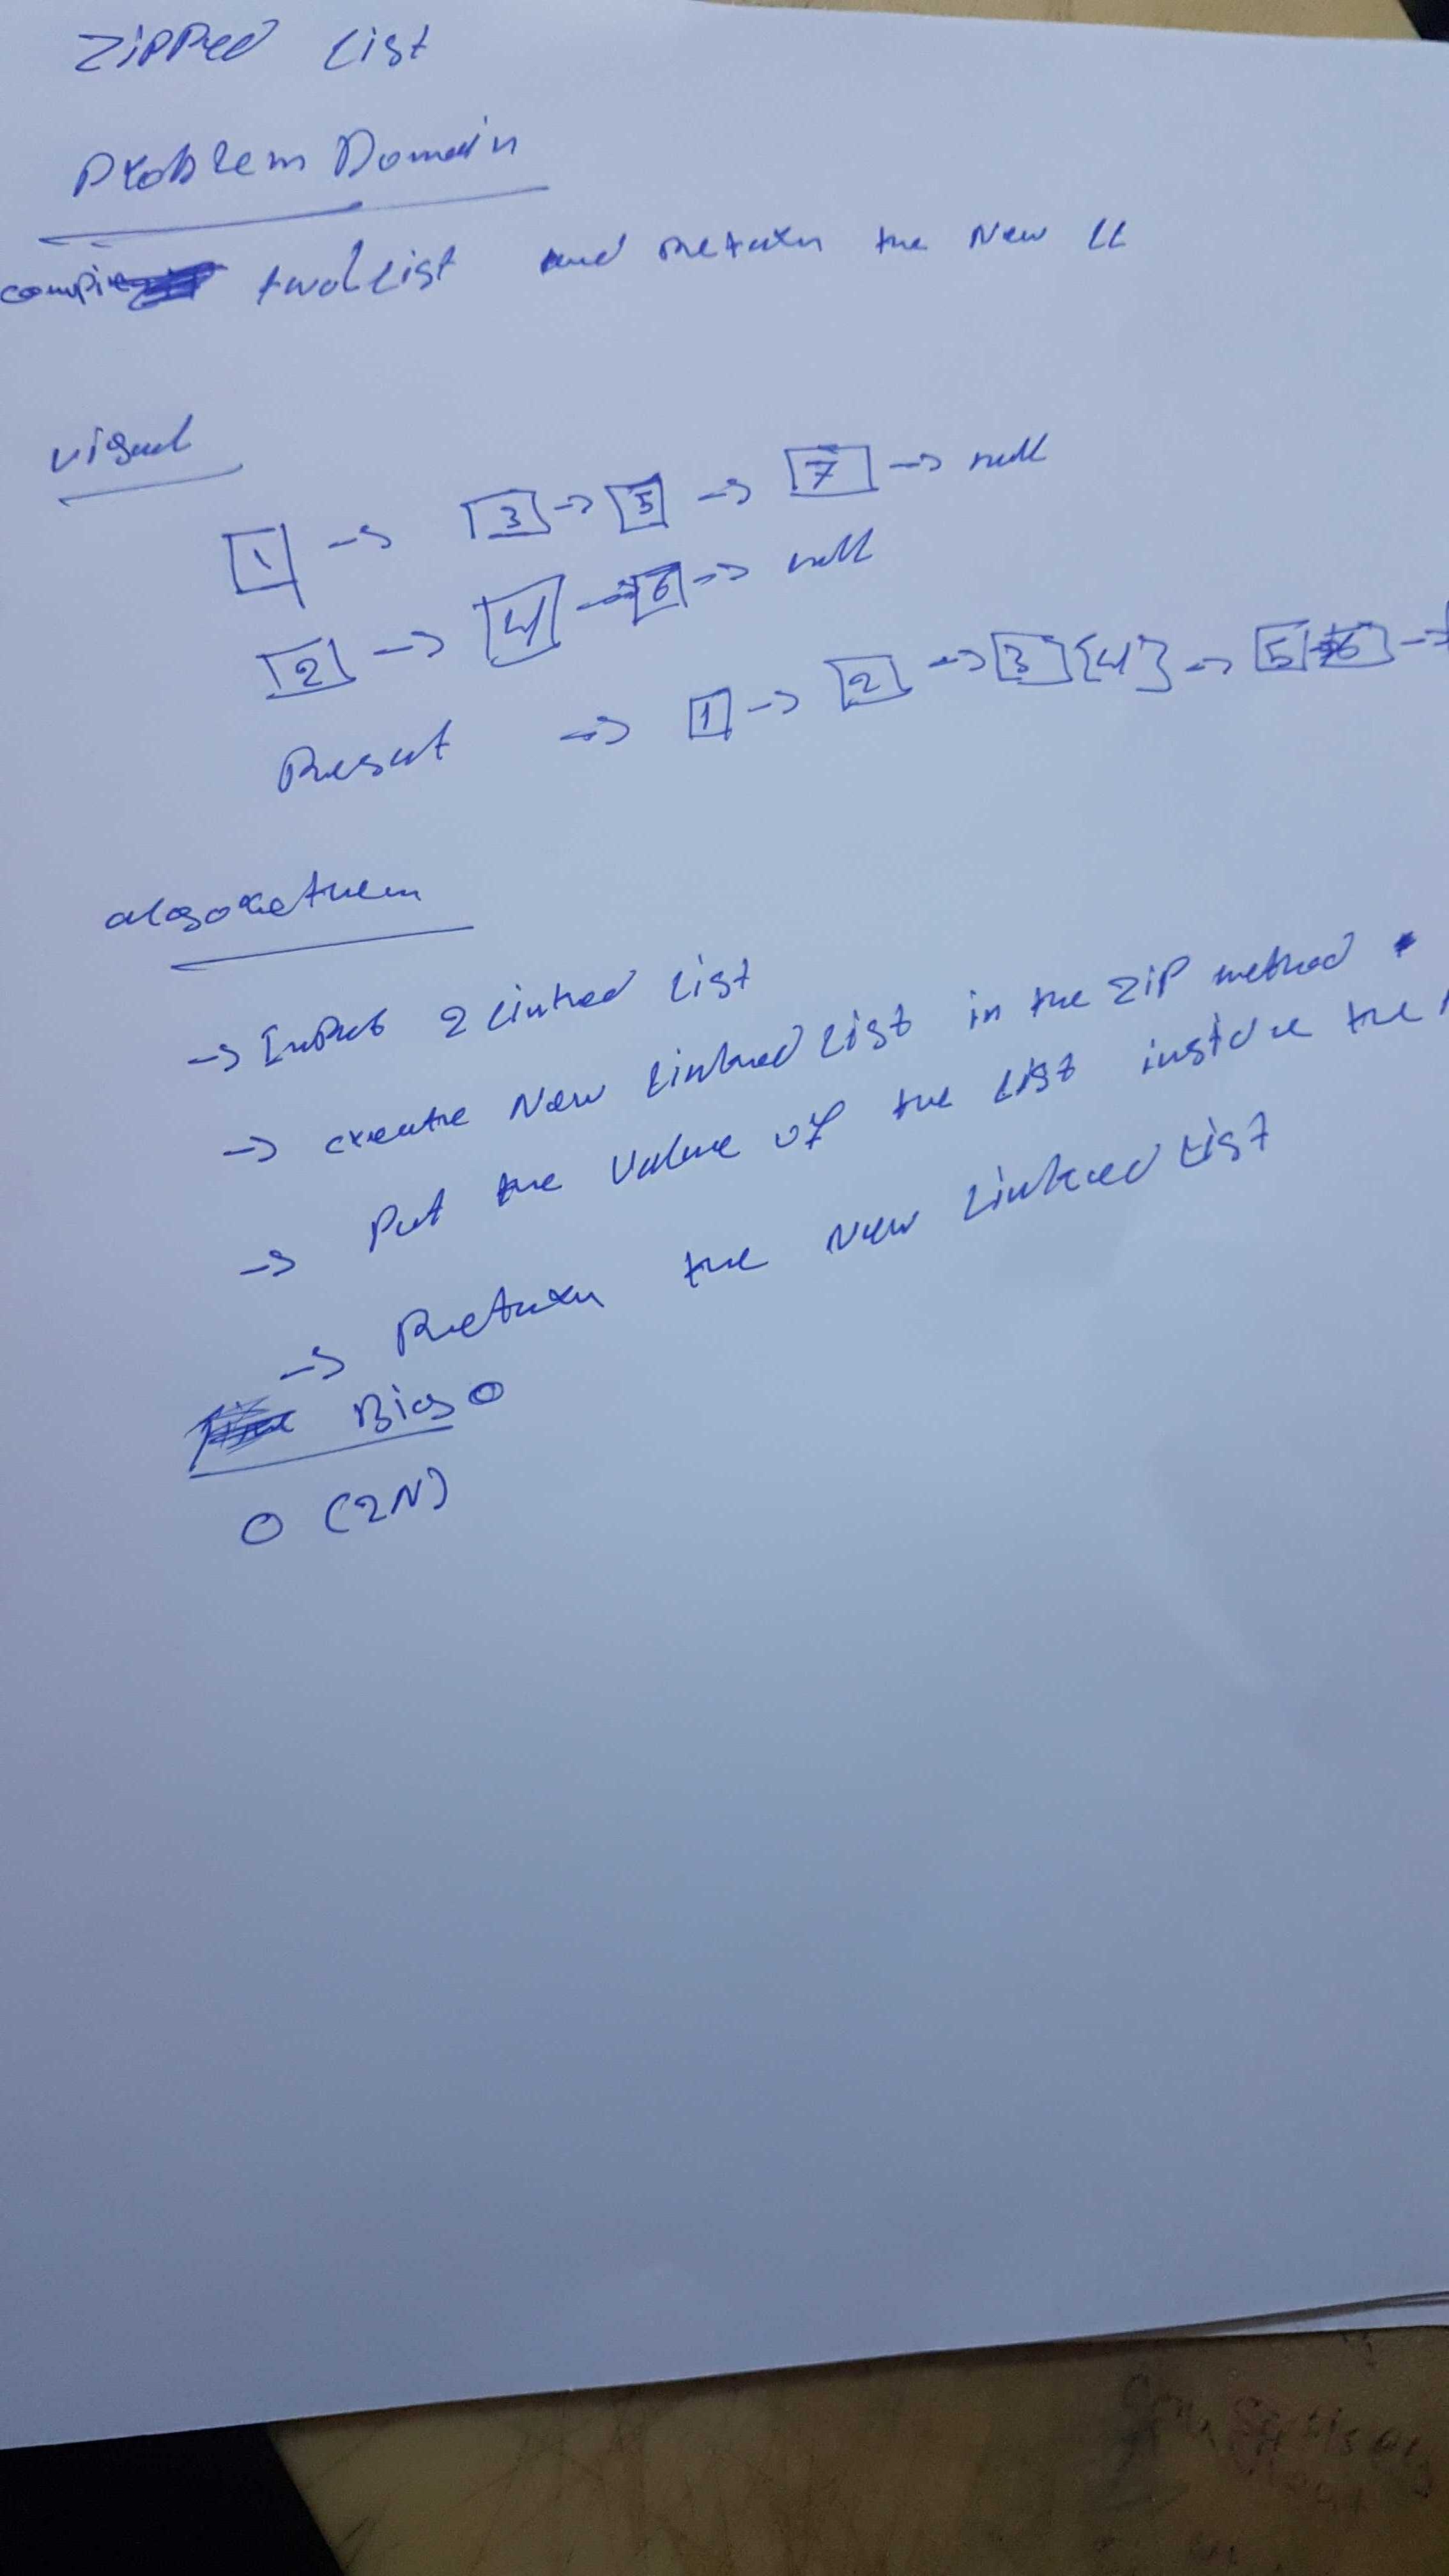 Zipped List
Problem Domain
compine two List and return the New LL
visual
1 -> 3 -> 5 -> 7 -> null
2 -> 4 -> 6 -> null
Result -> 1 -> 2 -> 3 {4} -> 5 -> 6 ->
algorethem
-> Input 2 linked List
-> create New linked List in the zip method
-> Put the value of the List inside the
-> Return the New Linked List
Big O
O (2N)